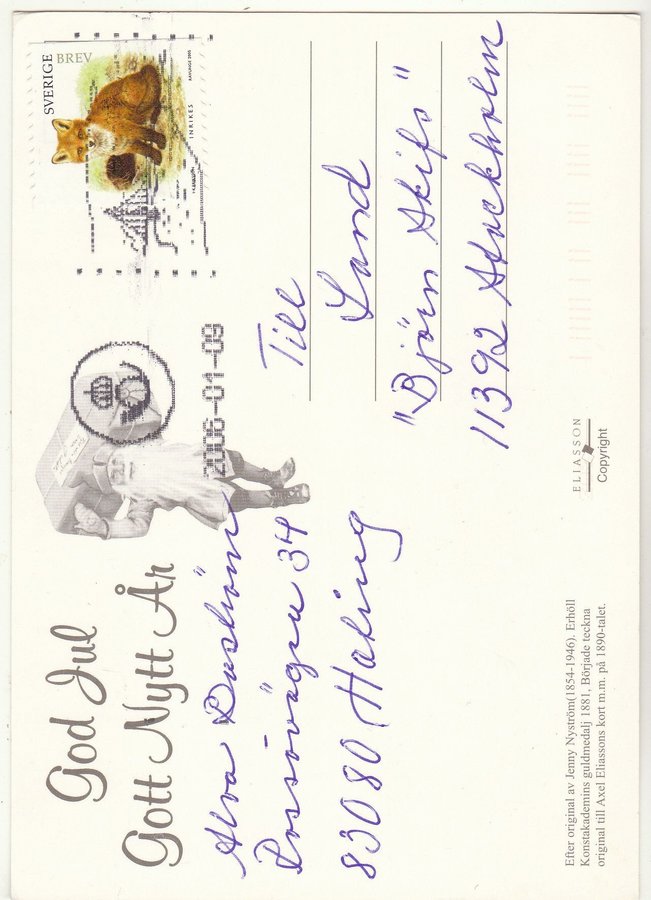 God Jul
Gott Nytt År
Alva
34
83080 Hoting
SVERIGE
BREV
INRIKES
2006-01-09
Till
Land
"Björn Skifs"
11392 Stockholm
ELIASSON
Copyright
Efter original av Jenny Nyström(1854-1946). Erhöll
Konstakademins guldmedalj 1881, Började teckna
original till Axel Eliassons kort m.m. på 1890-talet.